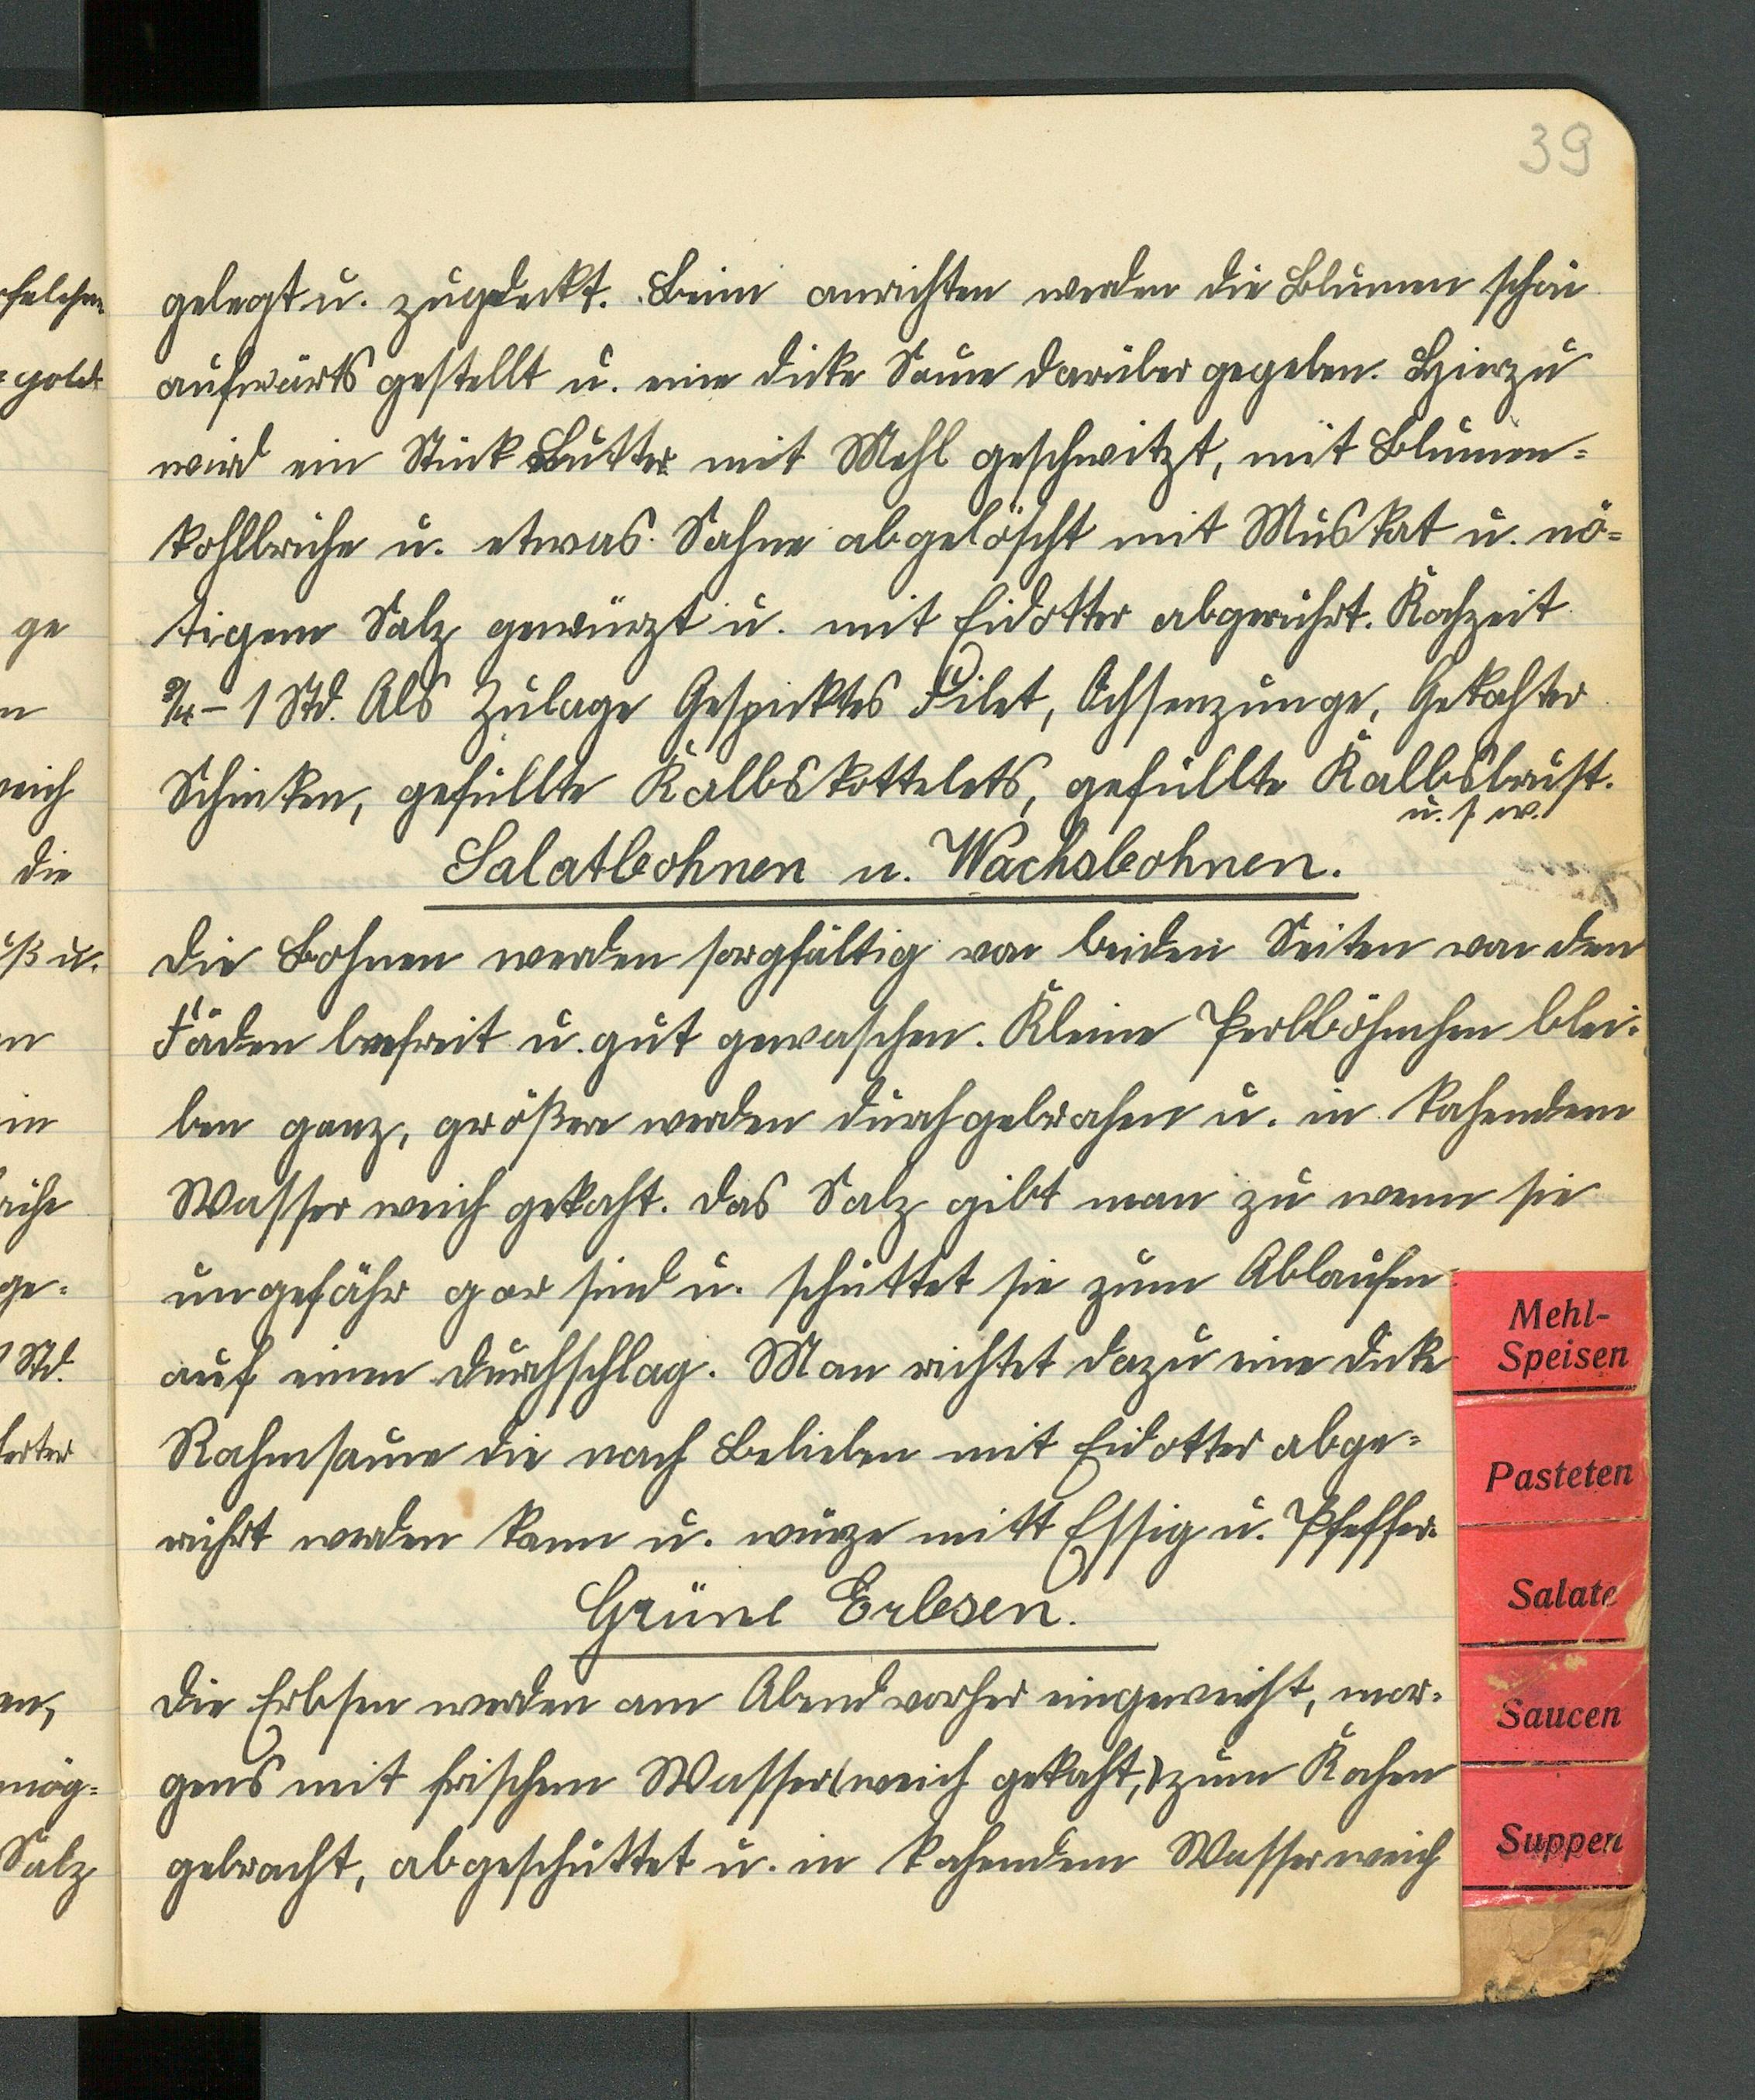 39
gelegt u. zugedeckt. Beim anrichten werden die Blumen schön
aufwärts gestellt u. eine dicke Sauce darüber gegeben. Hierzu
wird ein Stück Butter mit Mehl geschwitzt, mit Blumen=
kohlbrühe u. etwas Sahne abgelöscht mit Muskat u. nö=
tigem Salz gewürzt u. mit Eidotter abgerührt. Kochzeit
3/4 - 1 Std. Als Zulage Gespicktes Filet, Ochsenzunge, Gekochter
Schinken, gefüllte Kalbskottelets, gefüllte Kalbsbrust.
u. s. w.
Salatbohnen u. Wachsbohnen.
Die Bohnen werden sorgfältig von beiden Seiten von den
Fäden befreit u. gut gewaschen. Kleine Perlböhnchen blei=
ben ganz, größere werden durchgebrochen u. in kochendem
Wasser weich gekocht. Das Salz gibt man zu wenn sie
ungefähr gar sind u. schüttet sie zum Ablaufen
auf einen Durchschlag. Man richtet dazu eine dicke
Rahmsauce die nach Belieben mit Eidotter abge=
rührt werden kann u. würze mitt Essig u. Pfeffer.
Grüne Erbsen.
Die Erbsen werden am Abend vorher eingeweicht, mor=
gens mit frischem Wasser (weich gekocht,) zum Kochen
gebracht, abgeschüttet u. in kochendem Wasser weich
Mehl-
Speisen
Pasteten
Salate
Saucen
Suppen
ge
weich
die
u.
ge=
Std.
mög=
Salz